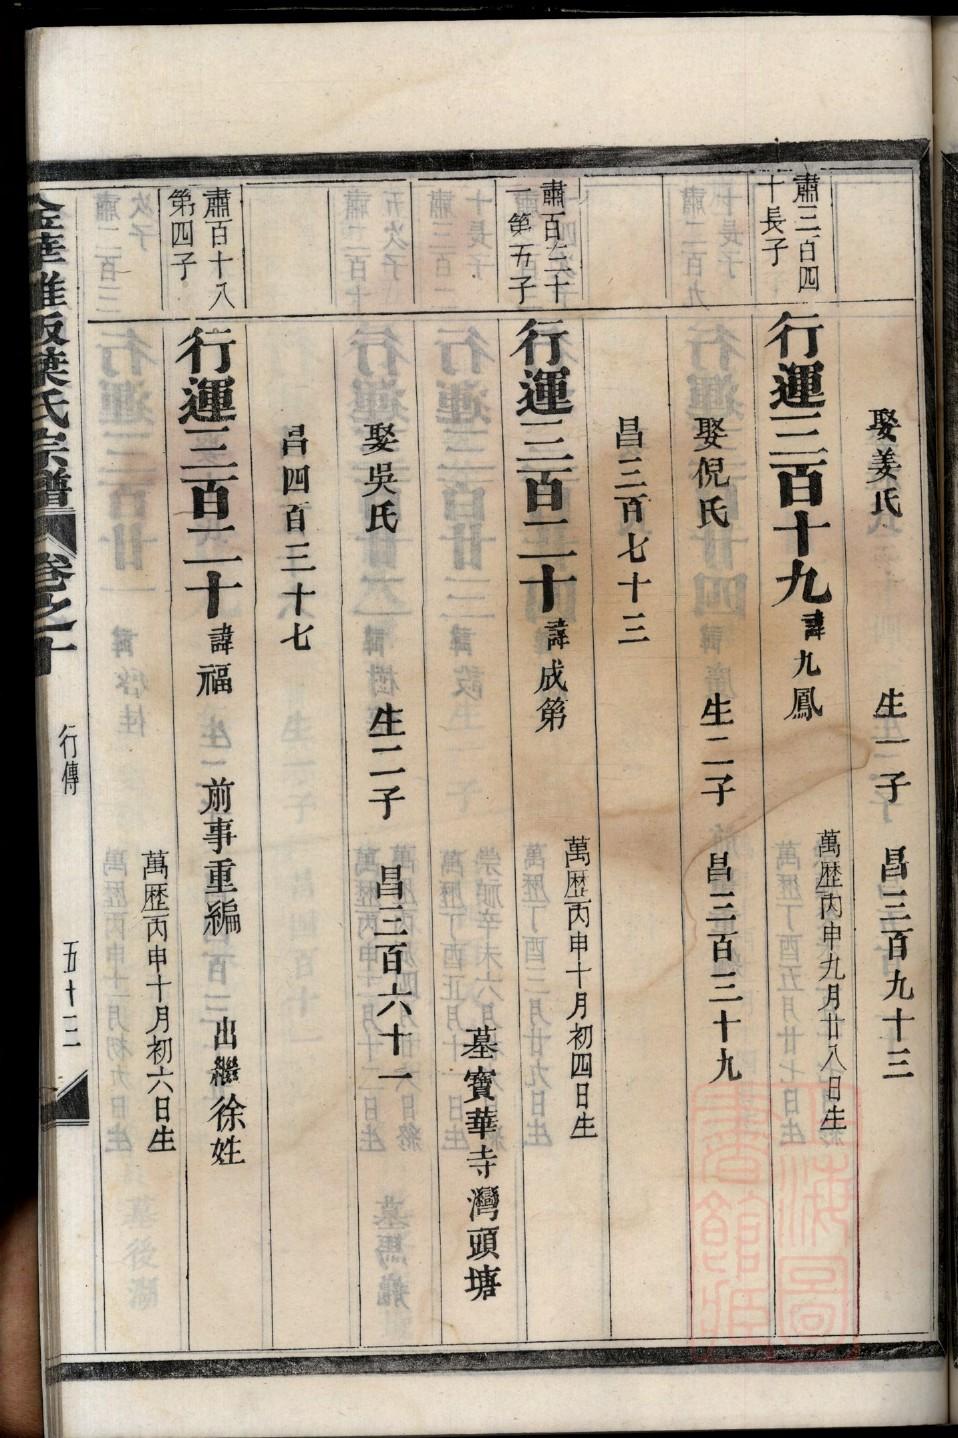 娶姜氏 生一子 昌三百九十三
肅三百四
十長子
行運三百十九 諱九鳳 萬歷丙申九月廿八日生
娶倪氏 生二子 昌三百三十九
昌三百七十三
肅百二十
一第五子
行運三百二十 諱成第 萬歷丙申十月初四日生
墓寶華寺灣頭塘
娶吳氏 生二子 昌三百六十一
昌四百三十七
肅百十八
第四子
行運三百二十 諱福 前事重編 出繼徐姓
萬歷丙申十月初六日生
葉氏宗譜 卷之十 行傳 五十三